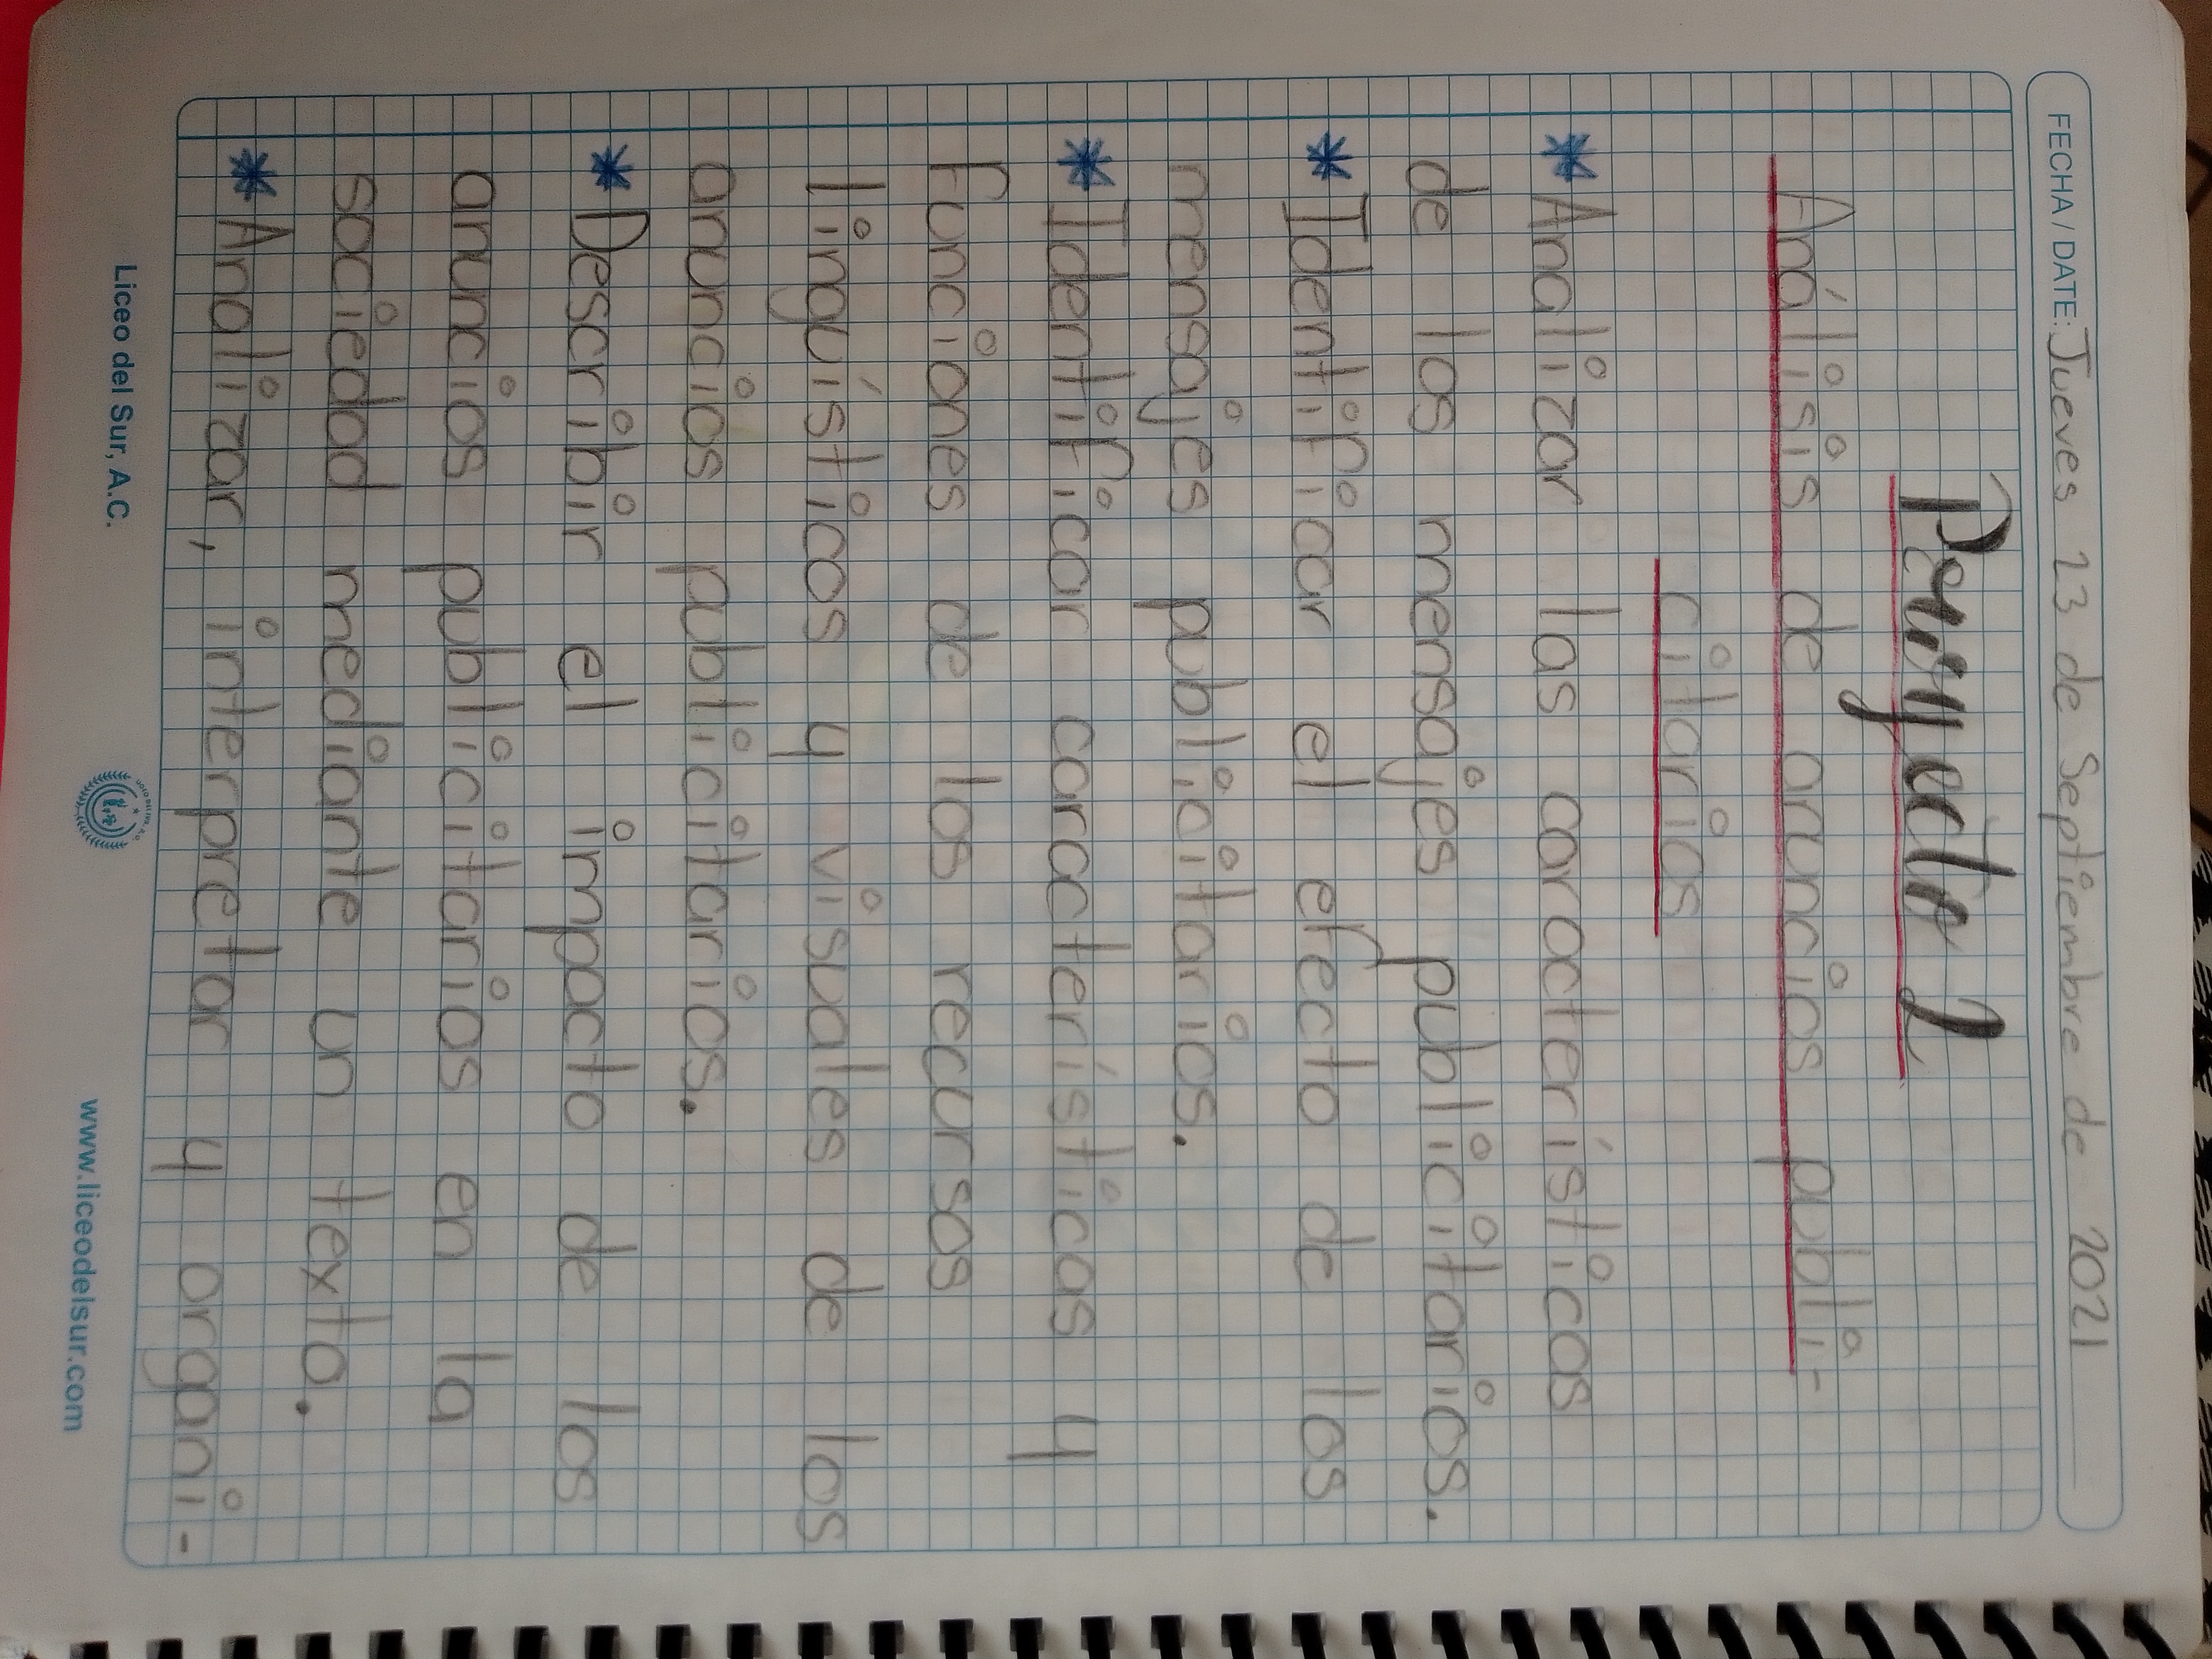 FECHA / DATE: Jueves 23 de Septiembre de 2021
Proyecto 2
Análisis de anuncios publi-
citarios
* Analizar las características
de los mensajes publicitarios.
* Identificar el efecto de los
mensajes publicitarios.
* Identificar características y
funciones de los recursos
lingüísticos y visuales de los
anuncios publicitarios.
* Describir el impacto de los
anuncios publicitarios en la
sociedad mediante un texto.
* Analizar, interpretar y organi-
Liceo del Sur, A.C.
www.liceodelsur.com